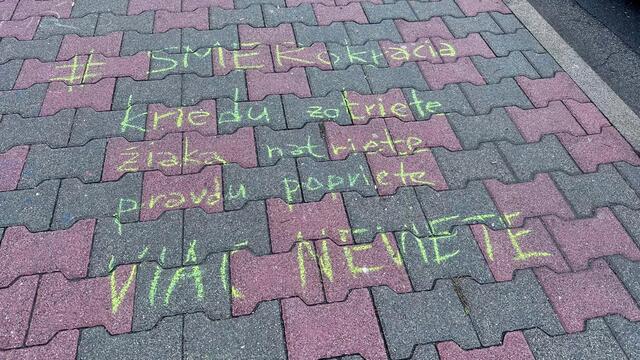 # SMEKokrácia
kriedu zotriete
žiaka natriete
pravdu popriete
VIAC NEVIETE